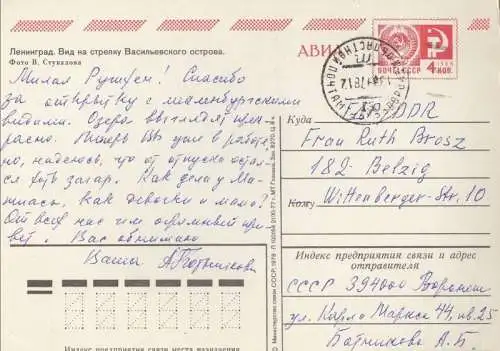 Ленинград. Вид на стрелку Васильевского острова.
Фото В. Стукалова
АВИА
ПОЧТА СССР 4 КОП.
Милая Рутхен! Спасибо
за открытку с мекленбургскими
видами. Озеро выглядят прек-
расно. Теперь Вы уже в работе
но, надеюсь, что от отпуска остал-
ся хоть загар. Как дела у Ма-
тиаса, как девочки и мама?
От всех нас им огромный при-
вет. Вас обнимаю
Ваша А. Ботникова
DDR
Куда
Frau Ruth Brosz
182 Belzig
Кому Wittenberger-Str. 10
Индекс предприятия связи и адрес
отправителя
СССР 394000 Воронеж
ул. Карла Маркса 44, кв. 25
Ботникова А. Б.
© Министерство связи СССР. 1978
Индекс предприятия связи места назначения